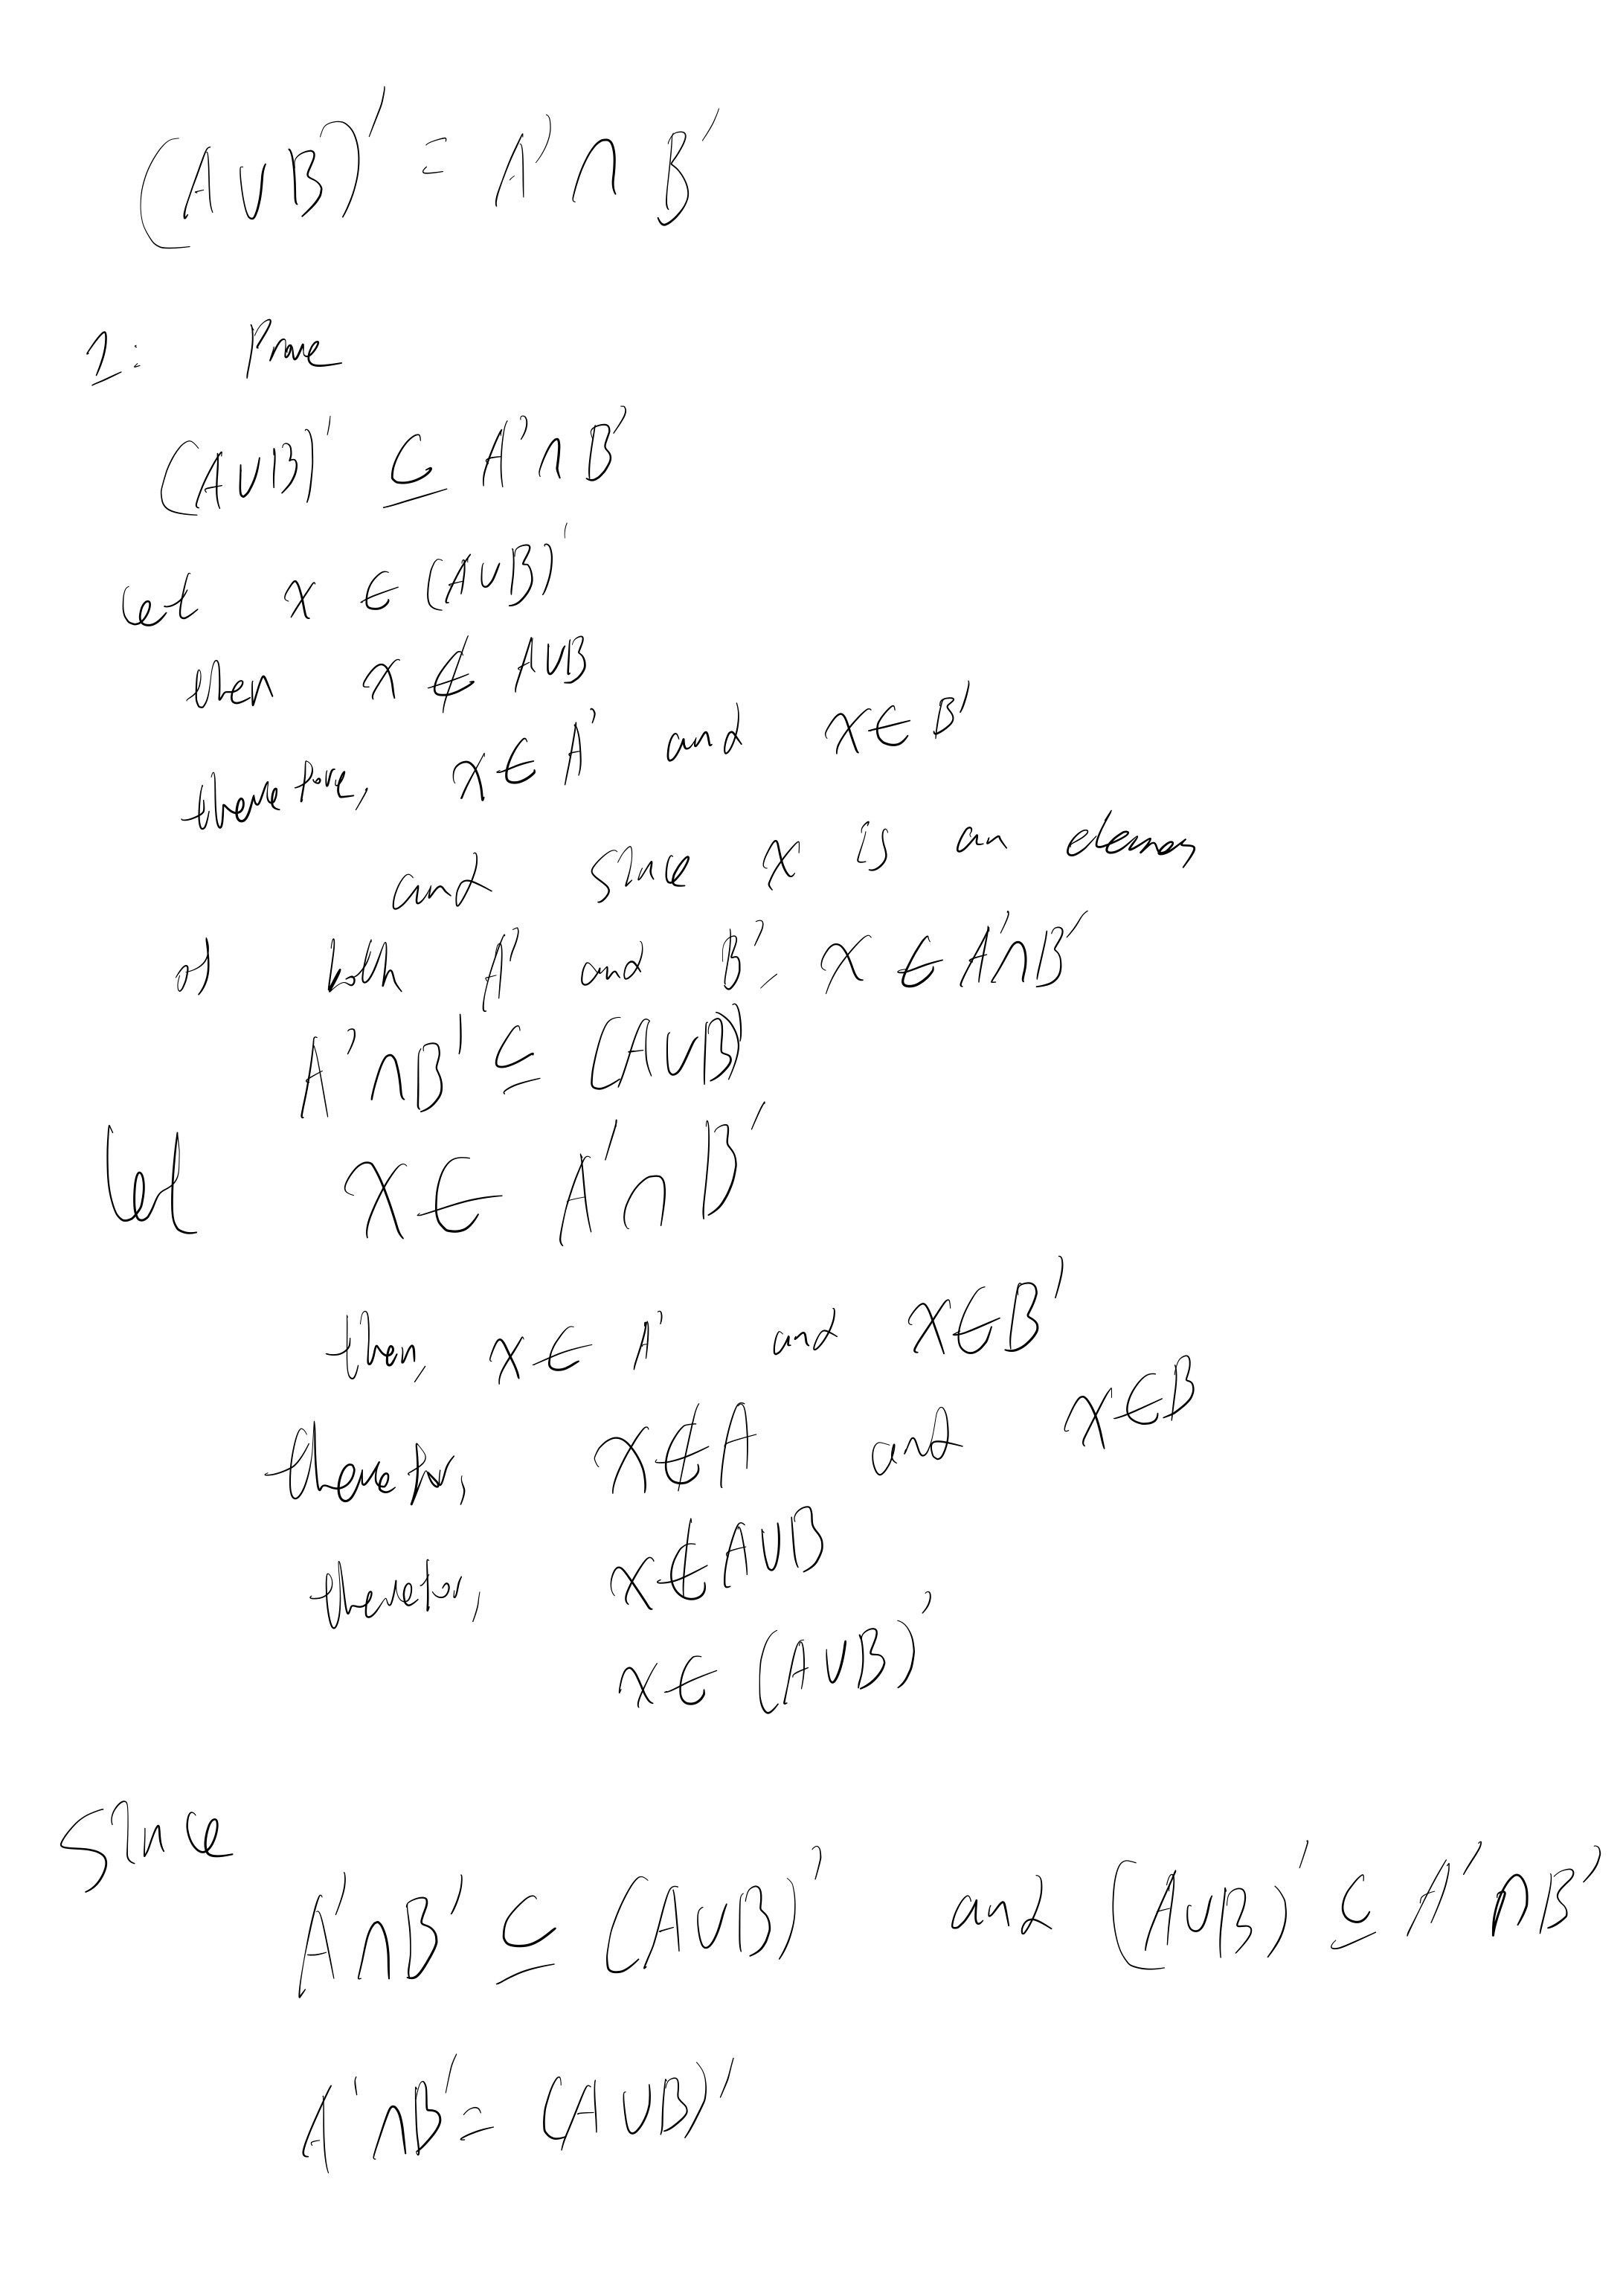 (A∪B)' = A' ∩ B'
2: Prove
(A∪B)' ⊆ A' ∩ B'
let x ∈ (A∪B)'
then x ∉ A∪B
therefore, x ∈ A' and x ∈ B'
and since x is an
of both A' and B', x ∈ A'∩B'
A'∩B' ⊆ (A∪B)'
let x ∈ A' ∩ B'
then, x ∈ A' and x ∈ B'
x ∉ A and x ∈ B
x ∉ A∪B
x ∈ (A∪B)'
Since
A'∩B' ⊆ (A∪B)' and (A∪B)' ⊆ A'∩B'
A'∩B' = (A∪B)'